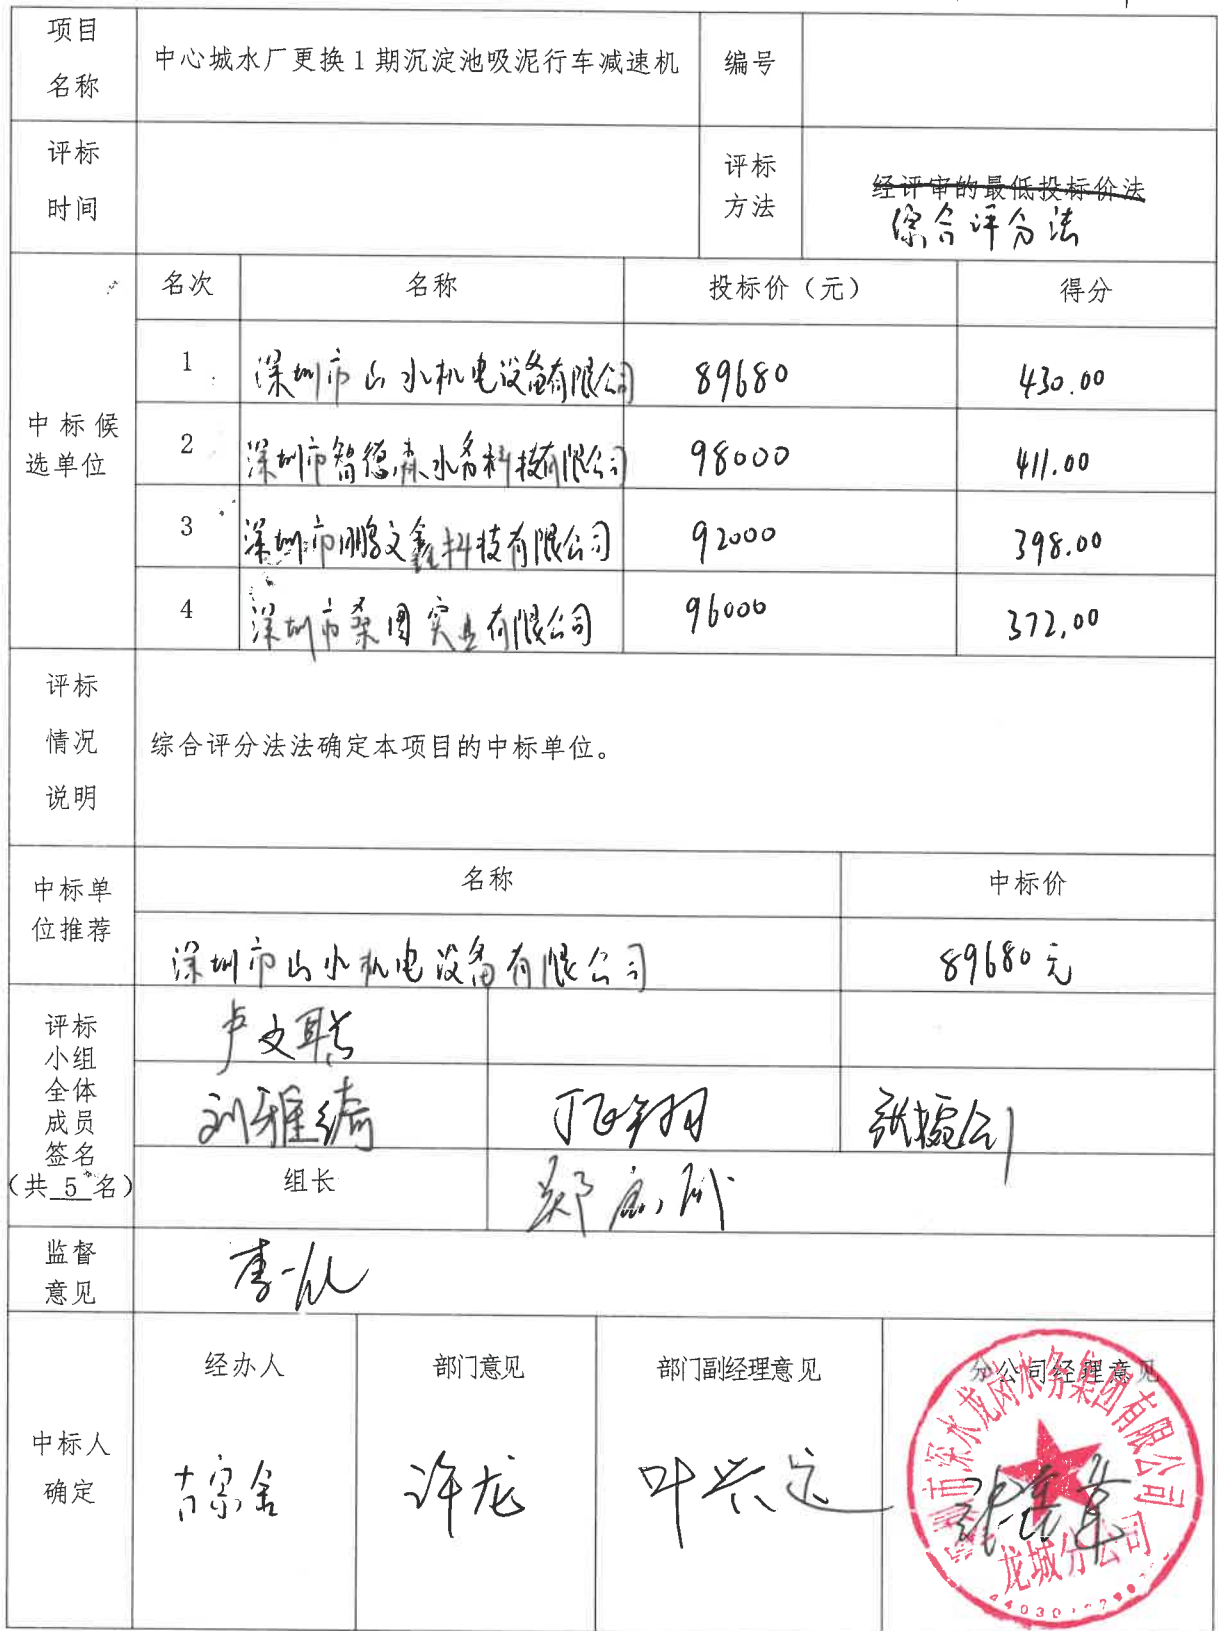 项目
名称
中心城水厂更换1期沉淀池吸泥行车减速机
编号
评标
时间
评标
方法
经评审的最低投标价法
综合评分法
中标候
选单位
名次 名称 投标价（元） 得分
1 深圳市山水机电设备有限公司 89680 430.00
2 深圳市智德森水务科技有限公司 98000 411.00
3 深圳市鹏文鑫科技有限公司 92000 398.00
4 深圳市桑图实业有限公司 96000 372.00
评标
情况
说明
综合评分法法确定本项目的中标单位。
中标单
位推荐
名称 中标价
深圳市山水机电设备有限公司 89680元
评标
小组
全体
成员
签名
（共5名）
卢文联
刘雅绮
组长
郑
监督
意见
李
中标人
确定
经办人 部门意见 部门副经理意见 分公司经理意见
许龙 叶兴
深圳市深水龙岗水务集团有限公司
龙城分公司